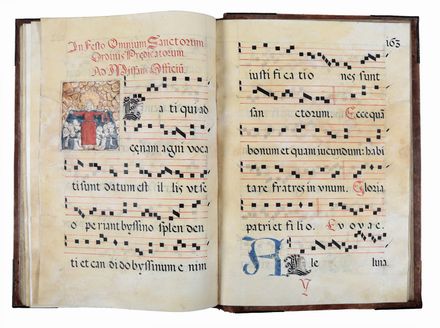 In Festo Omnium Sanctorum
Ordinis Predicatorum
Ad Missam Officiũ
Eati qui ad
cenam agni voca
ti sunt datum est il lis vt se
o periant byssino splen den
ti et can di do byssinum e nim
163
iusti fi ca tio nes sunt
san ctorum. Ecce quã
bonum et quam iucundum: habi
tare fratres in vnum. Gloria
patri et fi lio. E v o v a e.
A l le luia
V